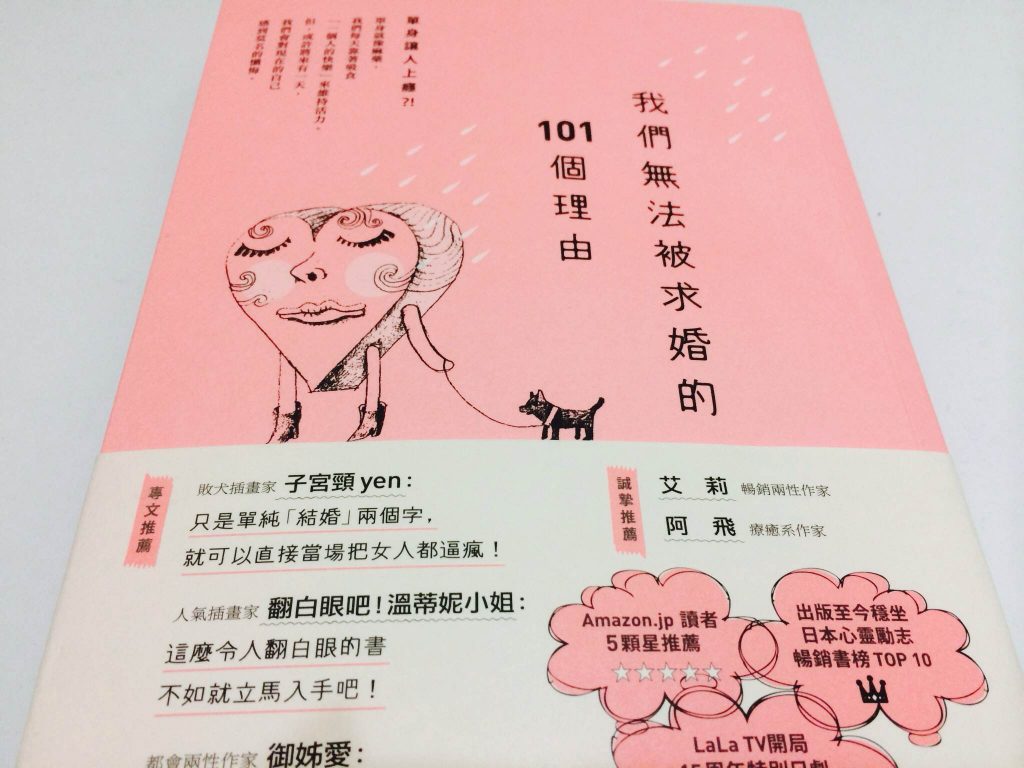 我們無法被求婚的
101個理由
單身讓人上癮?!
單身就像麻藥，
我們每天靠著吸食
「一個人的快樂」來維持活力。
但，或許將來有一天，
我們會對現在的自己
感到莫名的懺悔。
專文推薦
敗犬插畫家 子宮頸yen：
只是單純「結婚」兩個字，
就可以直接當場把女人都逼瘋！
人氣插畫家 翻白眼吧！溫蒂妮小姐：
這麼令人翻白眼的書
不如就立馬入手吧！
都會兩性作家 御姊愛：
誠摯推薦
艾莉 暢銷兩性作家
阿飛 療癒系作家
Amazon.jp 讀者
5顆星推薦
出版至今穩坐
日本心靈勵志
暢銷書榜 TOP 10
LaLa TV開局
15周年特別日劇